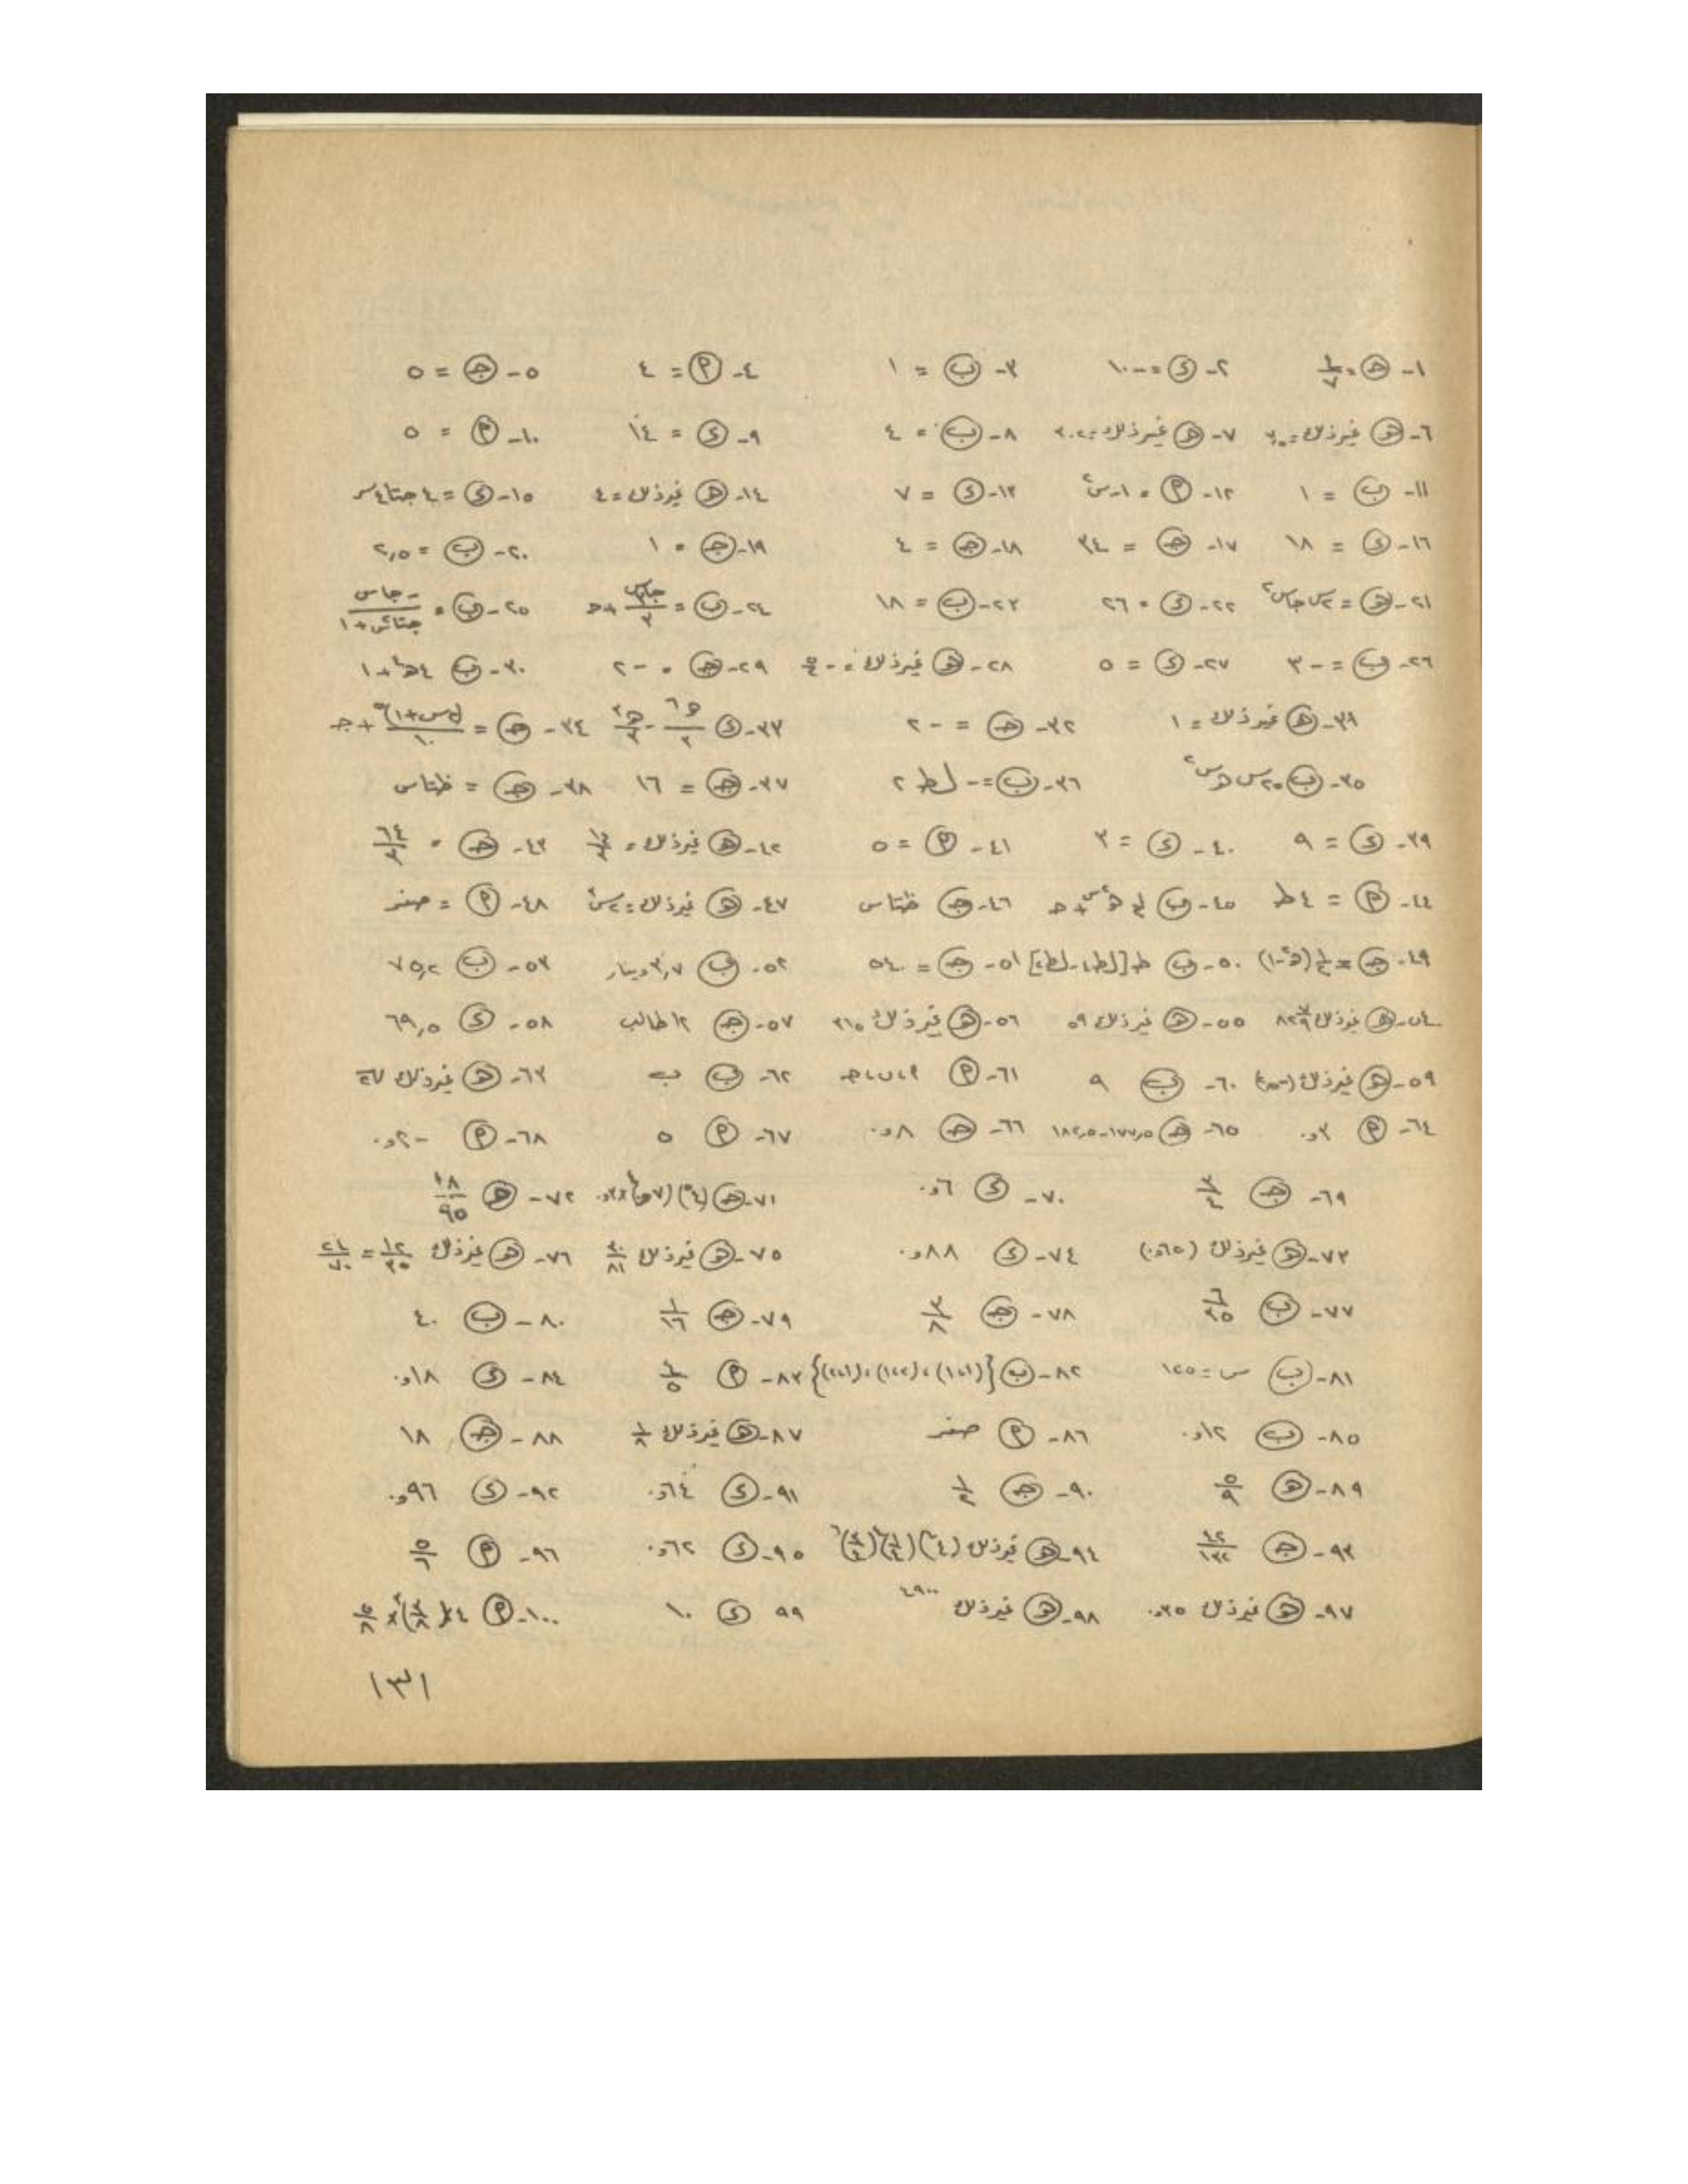 ١- هـ = ١/٧ ٢- د = -١٠ ٣- ب = ١ ٤- م = ٤ ٥- جـ = ٥
٦- هـ غيرذلك = ٧- هـ غيرذلك = ٨- ب = ٤ ٩- د = ١٤ ١٠- م = ٥
١١- ب = ١ ١٢- م = ١-س٢ ١٣- د = ٧ ١٤- هـ غيرذلك = ٤ ١٥- د = ٤ جتا٤س
١٦- د = ١٨ ١٧- جـ = ٣٤ ١٨- جـ = ٤ ١٩- جـ = ١ ٢٠- ب = ٢,٥
٢١- هـ = ٢س جاس٢ ٢٢- د = ٢٦ ٢٣- ب = ١٨ ٢٤- ب = جا٣س/٣ + جـ ٢٥- ب = -جاس/جتاس+١
٢٦- ب = -٣ ٢٧- د = ٥ ٢٨- هـ غيرذلك = -٥/٤ ٢٩- جـ = -٢ ٣٠- ب ٤هـ٤+١
٣١- هـ غيرذلك = ١ ٣٢- جـ = -٢ ٣٣- د هـ٦/٢ - هـ٢/٢ ٣٤- جـ = (٢س+١)٥/١٠ + جـ
٣٥- ب = ٢س هـس٢ ٣٦- ب = -لط ٢ ٣٧- جـ = ١٦ ٣٨- جـ = ظتاس
٣٩- د = ٩ ٤٠- د = ٣ ٤١- م = ٥ ٤٢- هـ غيرذلك = ٤٣- جـ = ٦٤/٣
٤٤- م = ٤ط ٤٥- ب ١/٢ هـ٢س + جـ ٤٦- جـ ظتاس ٤٧- هـ غيرذلك = ٢س ٤٨- م = صفر
٤٩- جـ = ١/٢(هـ٢-١) ٥٠- ب ط[لط٤-لط٢] ٥١- جـ = ٥٤٠ ٥٢- ب ٣,٧دينار ٥٣- ب ٧٥,٢
٥٤- هـ غيرذلك ٥٥- هـ غيرذلك ٥٩ ٥٦- هـ غيرذلك ٣١٥ ٥٧- جـ ١٢طالب ٥٨- د ٦٩,٥
٥٩- هـ غيرذلك ٦٠- ب ٩ ٦١- م ٦٢- ب ب ٦٣- هـ غيرذلك
٦٤- م ٣و٠ ٦٥- هـ ١٧٧,٥-١٨٢,٥ ٦٦- جـ ٨و٠ ٦٧- م ٥ ٦٨- م -٢و٠
٦٩- جـ ٣/٤ ٧٠- د ٦و٠ ٧١- جـ ٧٢- هـ ١٨/٩٥
٧٣- هـ غيرذلك (٦٥و٠) ٧٤- د ٨٨و٠ ٧٥- هـ غيرذلك ٤٠/٨١ ٧٦- هـ غيرذلك ١٢/٣٥ = ٢٤/٧٠
٧٧- ب ٦/٢٥ ٧٨- جـ ٣/٨ ٧٩- جـ ١/١٦ ٨٠- ب ٤٠
٨١- ب س = ١٢٥ ٨٢- ب {(١،١)،(١،٢)،(٢،١)} ٨٣- م ١/٥ ٨٤- د ١٨و٠
٨٥- ب ١٢و٠ ٨٦- م صفر ٨٧- هـ غيرذلك ١/٨ ٨٨- جـ ١٨
٨٩- هـ ٥/٩ ٩٠- جـ ١/٢ ٩١- د ٦٤و٠ ٩٢- د ٩٦و٠
٩٣- جـ ١٢/١٣٢ ٩٤- هـ غيرذلك ٩٥- د ٦٢و٠ ٩٦- م ٥/٦
٩٧- هـ غيرذلك ٣٥و٠ ٩٨- هـ غيرذلك ٤٩٠٠ ٩٩ د ١٠ ١٠٠- م ٤×(٣/٨)٣×٥/٨
١٣١